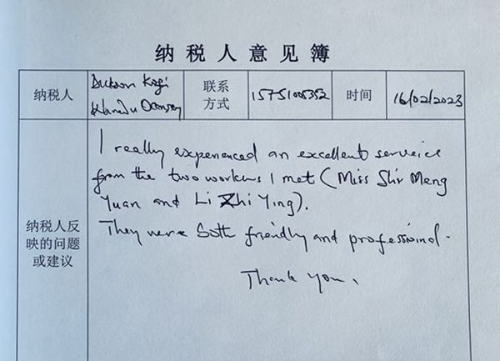 纳税人意见簿
纳税人
联系
方式
15751005352
时间
16/02/2023
纳税人反
映的问题
或建议
I really experienced an excellent serveice
from the two workers I met (Miss Shi Meng
Yuan and Li Zhi Ying).
They were both friendly and professional.
Thank you.